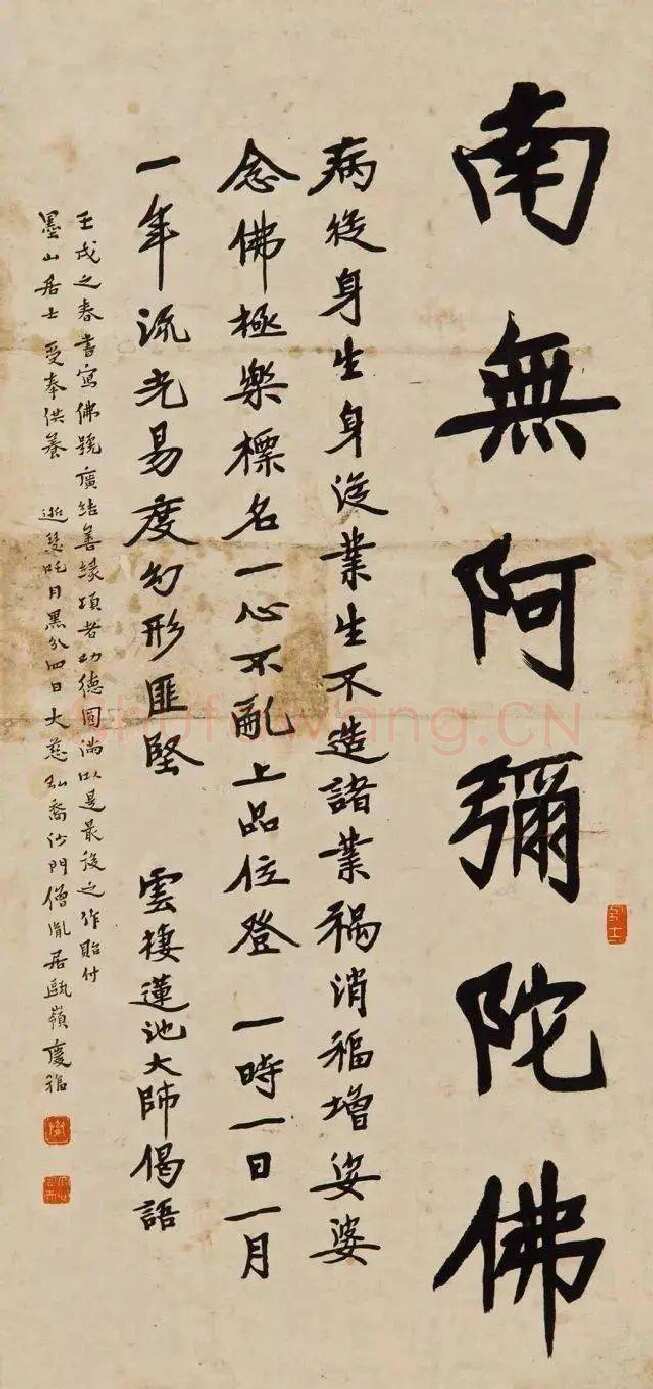 南無阿彌陀佛
病從身生身從業生不造諸業禍消福增娑婆
念佛極樂標名一心不亂上品位登 一時一日一月
一年流光易度幻形匪堅 雲棲蓮池大師偈語
壬戌之春書寫佛號廣結善緣頃者功德圓滿以是最後之作貽付
墨山居士 受奉供養 逝 月黑分四日大慈弘裔沙門僧胤居甌嶺慶福